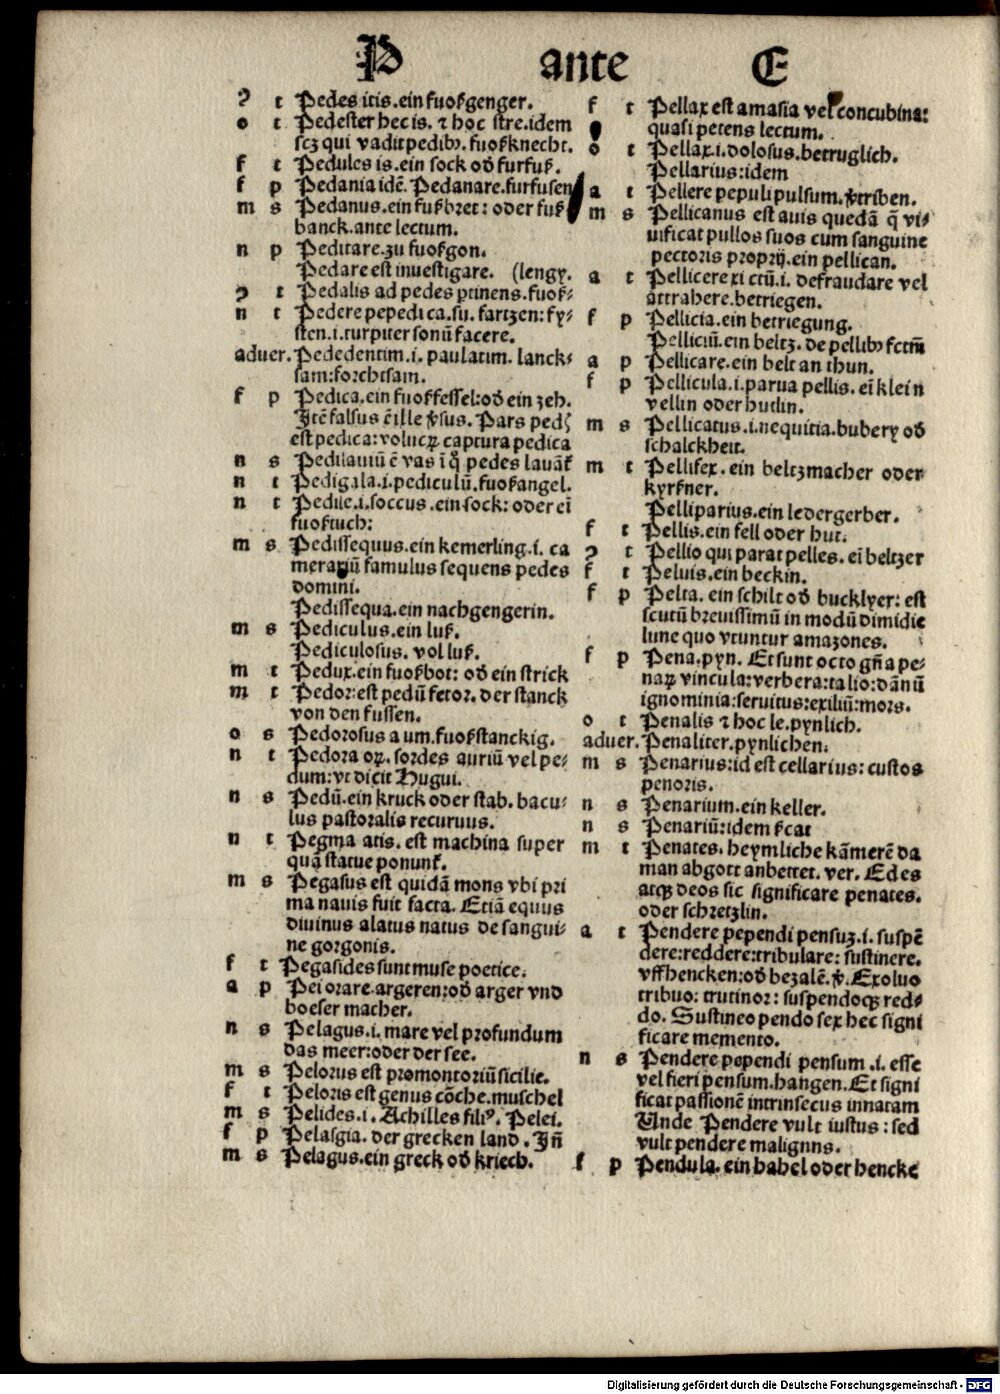 P ante E
ꝯ t Pedes itis.ein fuoßgenger.
o t Pedester hec is. ⁊ hoc stre.idem
scꝫ qui vadit pedibꝰ. fuoßknecht.
f t Pedules is.ein sock oď furfuß.
f p Pedania idē. Pedanare.furfusen
m s Pedanus.ein fußbret: oder fuß
banck.ante lectum.
n p Peditare.zu fuoßgon.
Pedare est inuestigare. (lengꝛ.
ꝯ t Pedalis ad pedes ꝑtinens.fuoß⸗
n t Pedere pepedi ca.su. fartzen: fy⸗
sten.i.turpiter sonū facere.
aduer. Pededentim.i. paulatim. lanck⸗
sam:forchtsam.
f p Pedica.ein fuoßfessel:oď ein zeh.
Itē falsus ē ille ꝟsus. Pars pedꝭ
est pedica:volucꝝ captura pedica
n s Pedilauiū ē vas ī q̊ pedes lauāt᷑
n t Pedigala.i.pediculū.fuoßangel.
n t Pedile.i.soccus.ein sock: oder eī
fuoßtuch:
m s Pedissequus.ein kemerling.i. ca
merariū famulus sequens pedes
domini.
Pedissequa.ein nachgengerin.
m s Pediculus.ein luß.
Pediculosus. vol luß.
m t Pedux.ein fuoßbot: oď ein strick
m t Pedor:est pedū fetor. der stanck
von den fussen.
o s Pedorosus a um.fuoßstanckig.
n t Pedora oꝝ. sordes auriū vel pe⸗
dum:vt dicit Hugui.
n s Pedū.ein kruck oder stab. bacu⸗
lus pastoralis recuruus.
n t Pegma atis. est machina super
quā statue ponunt᷑.
m s Pegasus est quidā mons vbi pri
ma nauis fuit facta. Etiā equus
diuinus alatus natus de sangui⸗
ne gorgonis.
f t Pegasides sunt muse poetice.
a p Peiorare.argeren:oď arger vnd
boeser macher.
n s Pelagus.i. mare vel profundum
das meer:oder der see.
m s Pelorus est promontoriū sicilie.
f t Peloris est genus cōche.muschel
m s Pelides.i. Achilles filiꝰ. Pelei.
f p Pelasgia. der grecken land. Iñ
m s Pelagus.ein greck oď kriech.
f t Pellax est amasia vel concubina:
quasi petens lectum.
o t Pellax.i.dolosus.betruglich.
Pellarius:idem
a t Pellere pepuli pulsum.ꝟtriben.
m s Pellicanus est auis quedā q̄ vi⸗
uificat pullos suos cum sanguine
pectoris proprij.ein pellican.
a t Pellicere xi ctū.i. defraudare vel
attrahere.betriegen.
f p Pellicia.ein betriegung.
Pelliciū.ein beltz. de pellibꝰ fctm̄
a p Pellicare.ein belt an thun.
f p Pellicula.i.parua pellis. eī klein
vellin oder hutlin.
m s Pellicatus.i.nequitia.bubery oď
schalckheit.
m t Pellifex. ein beltzmacher oder
kyrßner.
Pelliparius.ein ledergerber.
f t Pellis.ein fell oder hut.
ꝯ t Pellio qui parat pelles. eī beltzer
f t Peluis.ein beckin.
f p Pelta. ein schilt oď bucklyer: est
scutū breuissimū in modū dimidie
lune quo vtuntur amazones.
f p Pena.pyn. Et sunt octo gn̄a pe⸗
naꝝ vincula:verbera:talio:dānū
ignominia:seruitus:exiliū:mors.
o t Penalis ⁊ hoc le.pynlich.
aduer. Penaliter.pynlichen.
m s Penarius:id est cellarius: custos
penoris.
n s Penarium.ein keller.
n s Penariū:idem ßcat
m t Penates. heymliche kāmerē da
man abgott anbettet. ver. Edes
atqꝫ deos sic significare penates.
oder schretzlin.
a t Pendere pependi pensuꝫ.i. suspē
dere:reddere:tribulare: sustinere.
vffhencken:oď bezalē.ꝟ. Exoluo
tribuo: trutinor: suspendoqꝫ red⸗
do. Sustineo pendo sex hec signi
ficare memento.
n s Pendere pependi pensum.i. esse
vel fieri pensum.hangen.Et signi
ficat passionē intrinsecus innatam
Unde Pendere vult iustus: sed
vult pendere malignns.
f p Pendula. ein habel oder hencke
Digitalisierung gefördert durch die Deutsche Forschungsgemeinschaft - DFG